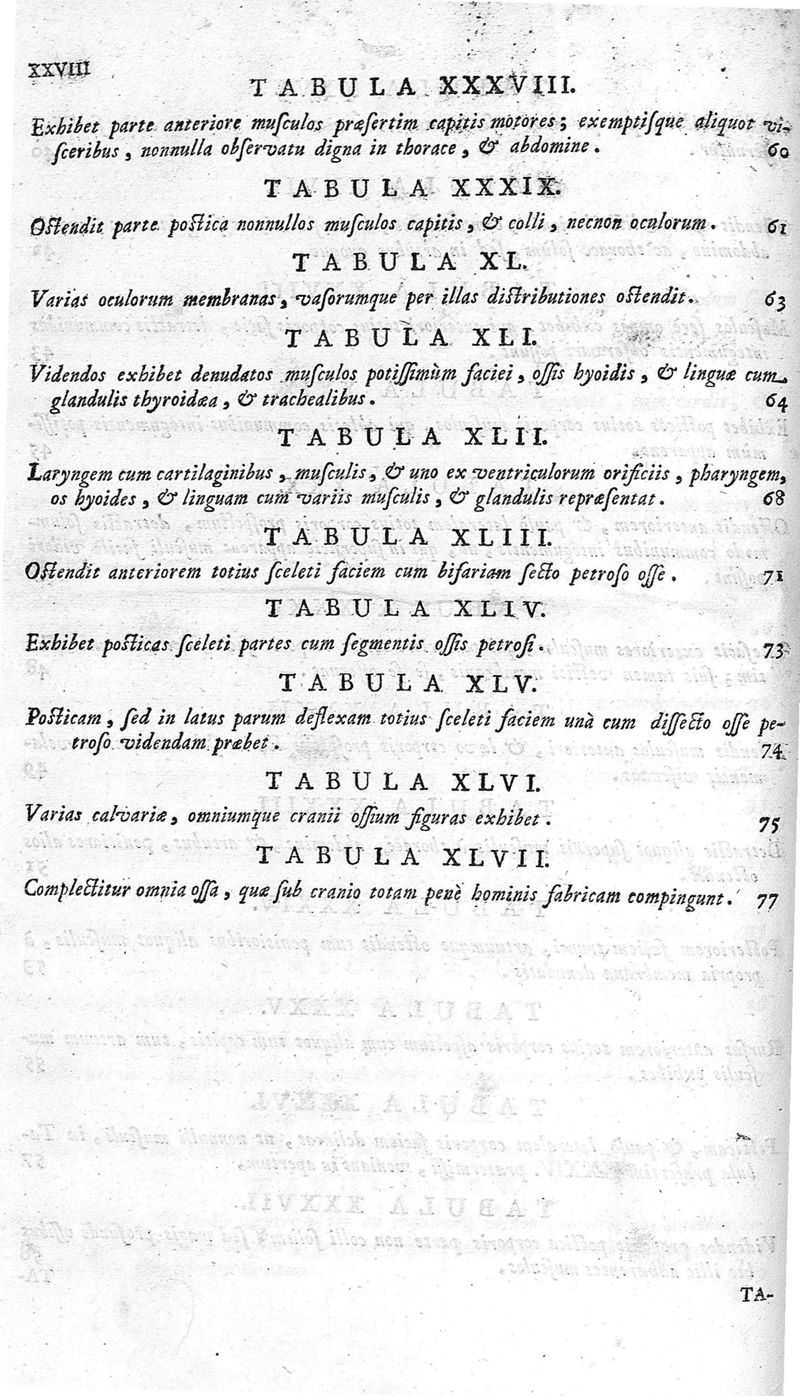 XXVIII
TABULA XXXVIII.
Exhibet parte anteriore muſculos præſertim capitis motores; exemptiſque aliquot vi-
ſceribus, nonnulla obſervatu digna in thorace, & abdomine. 60
TABULA XXXIX.
Oſtendit parte poſtica nonnullos muſculos capitis, & colli, necnon oculorum. 61
TABULA XL.
Varias oculorum membranas, vaſorumque per illas diſtributiones oſtendit. 63
TABULA XLI.
Videndos exhibet denudatos muſculos potiſſimùm faciei, oſſis hyoidis, & linguæ cum
glandulis thyroidæa, & trachealibus. 64
TABULA XLII.
Laryngem cum cartilaginibus, muſculis, & uno ex ventriculorum orificiis, pharyngem,
os hyoides, & linguam cum variis muſculis, & glandulis repræſentat. 68
TABULA XLIII.
Oſtendit anteriorem totius ſceleti faciem cum bifariam ſecto petroſo oſſe. 71
TABULA XLIV.
Exhibet poſticas ſceleti partes cum ſegmentis oſſis petroſi. 73
TABULA XLV.
Poſticam, ſed in latus parum deflexam totius ſceleti faciem unà cum diſſecto oſſe pe-
troſo videndam præbet. 74
TABULA XLVI.
Varias calvariæ, omniumque cranii oſſium figuras exhibet. 75
TABULA XLVII.
Complectitur omnia oſſa, quæ ſub cranio totam penè hominis fabricam compingunt. 77
TA-